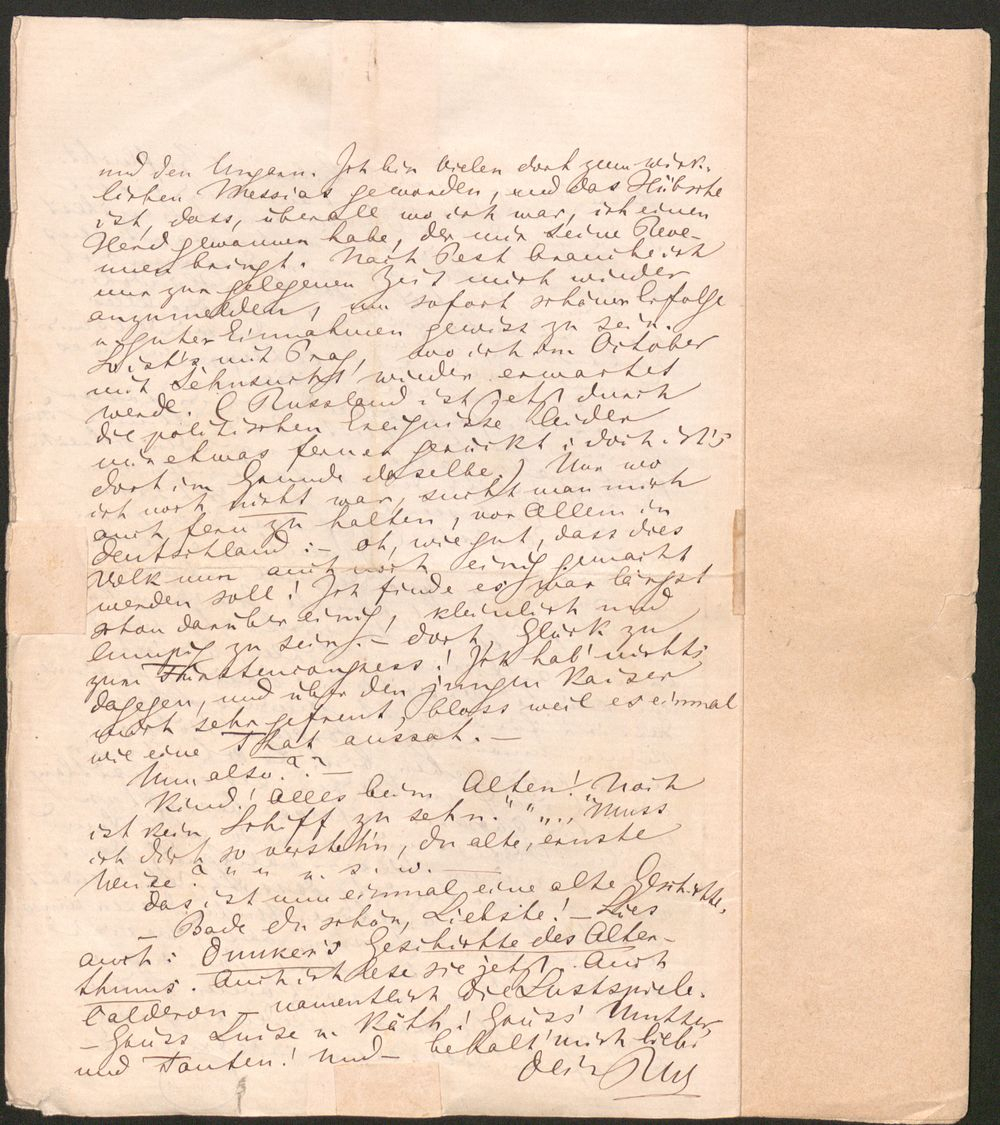 und den Ungarn. Ich bin Vielen dort zum wirk-
lichen Messias geworden, und das Hübsche
ist, dass, überall wo ich war, ich einen
Herd gewonnen habe, der mir seine Reve-
nuen bringt. Nach Pest brauche ich
nur zur gelegenen Zeit mich wieder
anzumelden, um sofort schöner Erfolge
u. guter Einnahmen gewiss zu sein.
So ist's mit Prag, wo ich im October
mit Sehnsucht wieder erwartet
werde. (Russland ist jetzt durch
die politischen Ereignisse leider
mir etwas ferner gerückt; doch ist's
dort im Grunde daselbe.) Nur wo
ich noch nicht war, sucht man mich
auch fern zu halten, vor Allem in
Deutschland: – oh, wie gut, dass dies
Volk nun auch noch einig gemacht
werden soll! Ich finde es war längst
schon darüber einig, kleinlich und
lumpig zu sein. – doch, Glück zu
zum Fürstencongress! Ich hab' nichts
dagegen, und über den jungen Kaiser
mich sehr gefreut, bloss weil es einmal
wie eine That aussah. –
Nun also?? –
Kind! Alles beim Alten! Noch
ist kein Schiff zu sehn." "„Muss
ich dich so verstehn, du alte, ernste
Weise?" u. s. w. –
Das ist nun einmal eine alte Geschichte.
– Bade du schön, Liebste! – Lies
auch: Dunker's Geschichte des Alter-
thums. Auch ich lese sie jetzt. Auch
Calderon – namentlich die Lustspiele.
– Grüss Luise u. Käth! Grüss' Mutter
und Tanten! Und – behalt' mich lieb!
Dein RW